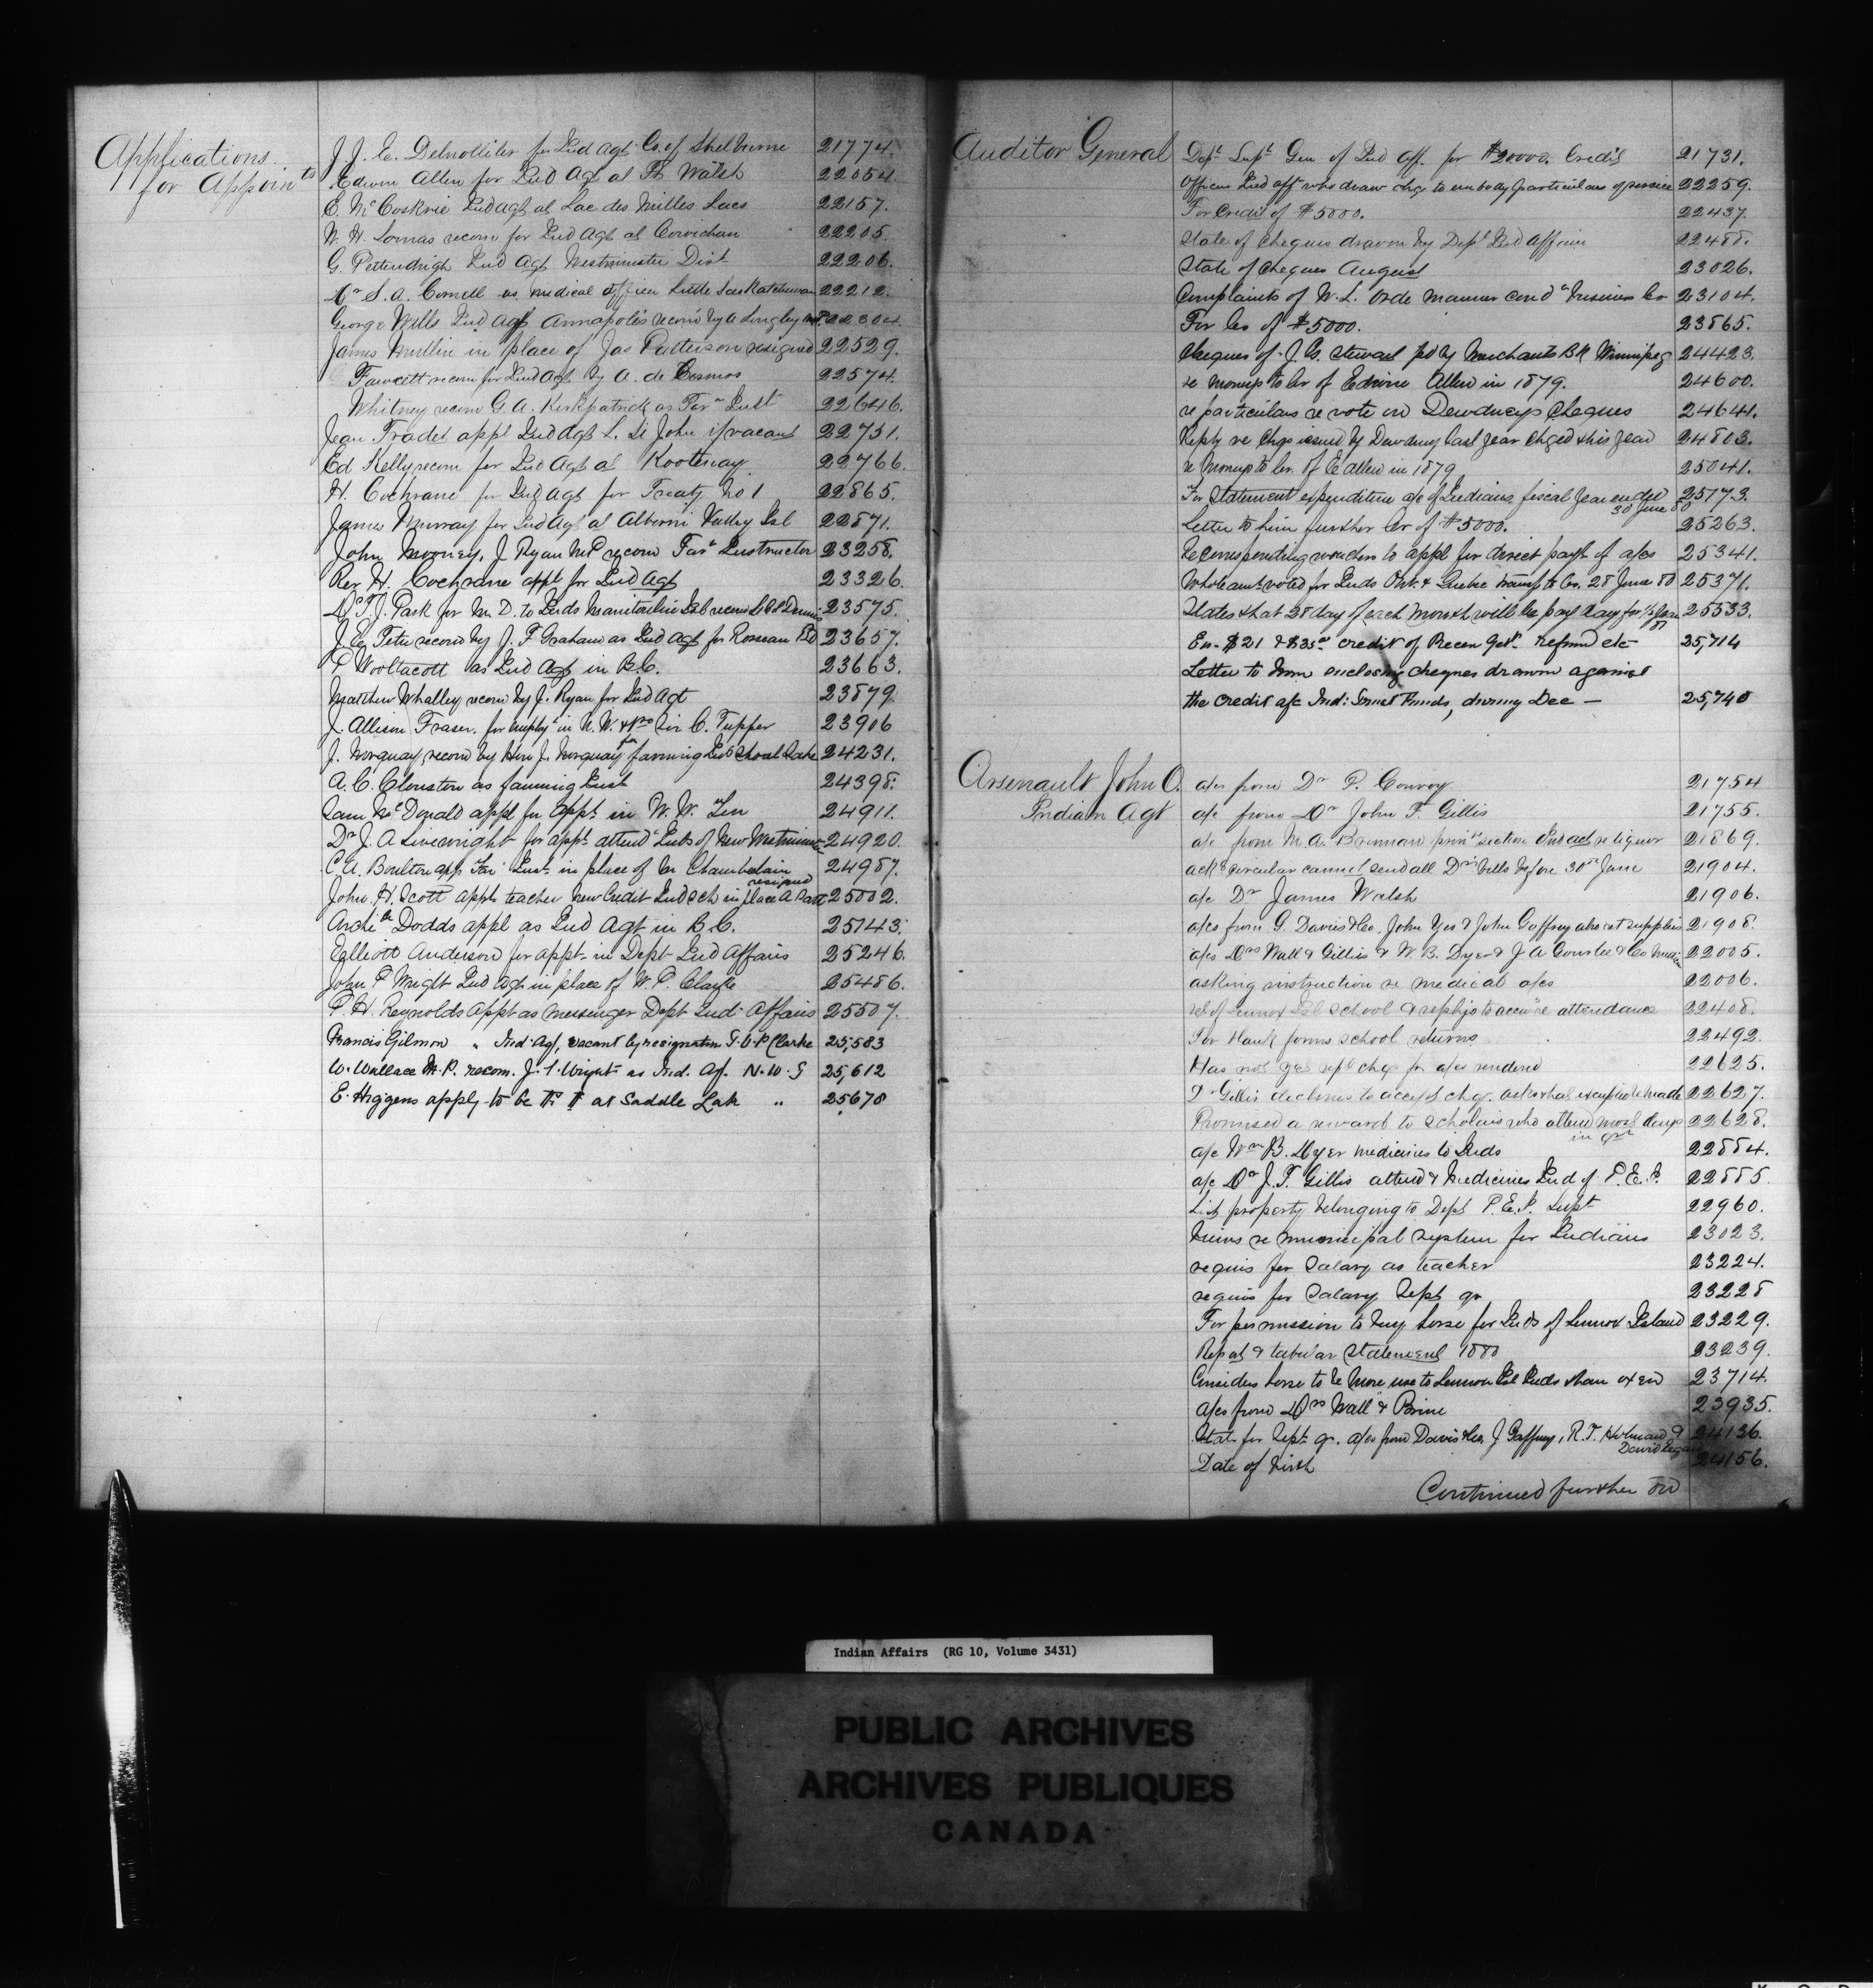 Applications
for Appoints
J. J. E. for Ind Agt Co. of Shelburne 21774.
Edwin Allen for Ind Agt at Ft Walsh 22054.
E. McCoskrie Ind Agt at Lac des Milles Lacs 22157.
W. H. Lomas recom for Ind Agt at Cowichan 22205.
G. Pettendrigh Ind Agt Westminster Dist 22206.
Dr S. A. Cornell as medical officer Little Saskatchewan 22212.
George Wells Ind Agt Annapolis recomd by A Longley 22304.
James Mullin in place of Jas Patterson resigned 22529.
Fawcett recom for Ind Agt by A. de Cosmos 22574.
Whitney recom G. A. Kirkpatrick as Farm Inst 22646.
Jean Tradel appl Ind Agt L. St John if vacant 22731.
Ed Kelly recom for Ind Agt at Kootenay 22766.
H. Cochrane for Ind Agt for Treaty No 1 22865.
James Murray for Ind Agt at Alberni Valley Isl 22871.
John Mooney, J Ryan MP recom Farm Instructor 23258.
Rev H. Cochrane appl for Ind Agt 23326.
Dr T. J. Park for M. D. to Inds Manitoulin Isl recom Dennis 23575.
J. Eg Tetu recom by J. F Graham as Ind Agt for Roseau Rd 23657.
P Wooltacott as Ind Agt in B.C. 23663.
Matthew Whalley recom by J. Ryan for Ind Agt 23879.
J. Allison Fraser, for emplyt in N. W. Sir C. Tupper 23906
J. Norquay recom by Hon J. Norquay for farming Inst Shoal Lake 24231.
A. C. Clouston as farming Inst 24398.
Sam McDonald appl for appt in N. W. Ter 24911.
Dr J. A Sivewright for appt attend Inds of New Westminster 24920.
C A. Boulton app Far Inst in place of Mr Chamberlain 24987.
resigned
John H. Scott appt teacher New Credit Ind Sch in place A 25002.
Archie Dodds appl as Ind Agt in B.C. 25143.
Elliott Anderson for appt in Dept Ind Affairs 25246.
John P Wright Ind Agt in place of W. P. Clarke 25486.
P. H. Reynolds appt as messenger Dept Ind Affairs 25507.
Francis Gilmor " Ind Agt, vacant by resignation T. W P Clarke 25,583
W. Wallace M. P. recom. J. P. Wright as Ind. Ag. N. W. S 25,612
E. Higgens apply to be at Saddle Lake " 25678
Auditor General
Dept Supt Gen of Ind Aff. for $20000. Credit 21731.
Officers Ind aff who draw chqs to embody particulars of service 22259.
For Credit of $5000. 22437.
State of cheques drawn by Dept Ind Affairs 22488.
State of Cheques August 23026.
Complaints of W. L. Orde manner cond business 23104.
For Cr of $5000. 23865.
Cheques of J. G. Stewart pd by Merchants BK Winnipeg 24423.
re moneys to Cr of Edwin Allen in 1879. 24600.
re particulars re vote on Dewdneys Cheques 24641.
Reply re Chqs issued by Dewdney last year chged this year 24803.
re moneys to Cr. of E Allen in 1879 25041.
For Statement expenditure a/c of Indians fiscal year ended 25173.
30 June 80
Letter to him further Cr of $5000. 25263.
Re corresponding vouchers to appl for direct payt of a/cs 25341.
Whole amt voted for Inds Ont. & Quebec transf to Cr. 28 June 80 25371.
States that 28 day of each month will be pay day for 25533.
En. $21 & $35 credit of Recei Genl. refund etc 25,714
Letter to him enclosing cheques drawn against
the credit a/c Ind: Trust Funds, during Dec — 25,740
Arsenault John O.
Indian Agt
a/cs from Dr P. Conroy 21754
a/c from Dr John F. Gillis 21755.
a/c from M. A. Brennan section Ind act re liquor 21869.
ackg circular cannot send all Drs bills before 30th June 21904.
a/c Dr James Walsh 21906.
a/cs from G. Davies & Co, John Yeo & John Gaffney supplies 21908.
a/cs Drs Wall & Gillis & W. B. Dyer & J A Gourlie & Co 22005.
asking instruction re medical a/cs 22006.
rel of Lennox Isl School & reply to re attendance 22408.
For blank forms school returns 22492.
Has not yet rept chqs for a/cs rendered 22625.
Dr Gillis declines to accept chq. 22627.
Promised a reward to scholars who attend most days 22628.
in qr
a/c Wm B. Dyer medicines to Inds 22884.
a/c Dr J. F. Gillis attend & Medicines Ind of P.E.I. 22885.
List property belonging to Dept P.E.I. Supt 22960.
Views re municipal system for Indians 23023.
requis for salary as teacher 23224.
requis for salary Sept qr 23228
For permission to buy horse for Inds of Lennox Island 23229.
Report & tabular statement 1880 23239.
Considers horse to be more use to Lennox Isl Inds than oxen 23714.
a/cs from Drs Wall & Prine 23935.
State for Sept qr. a/cs from Davis & Co, J Gaffney, R. T. Holman & 24136.
David
Date of birth 24156.
Continued further on
Indian Affairs (RG 10, Volume 3431)
PUBLIC ARCHIVES
ARCHIVES PUBLIQUES
CANADA